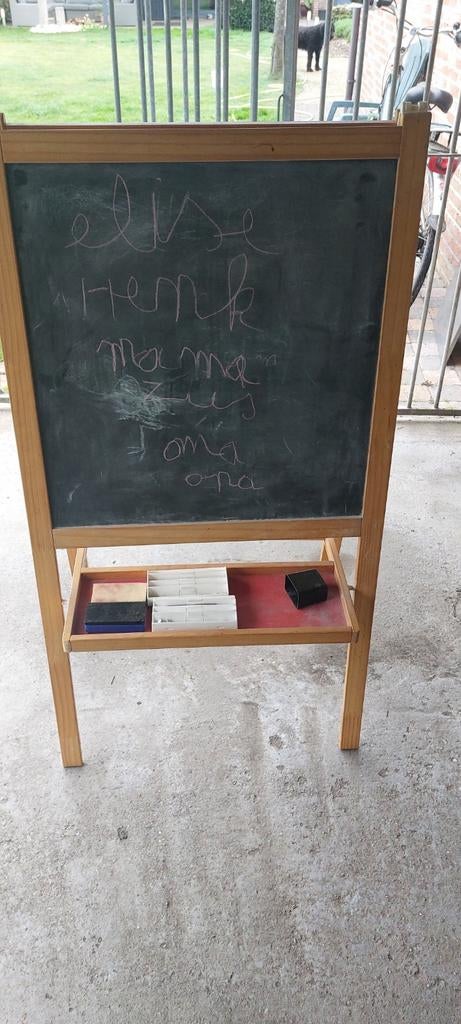 elise
Henk
mama
zus
oma
opa